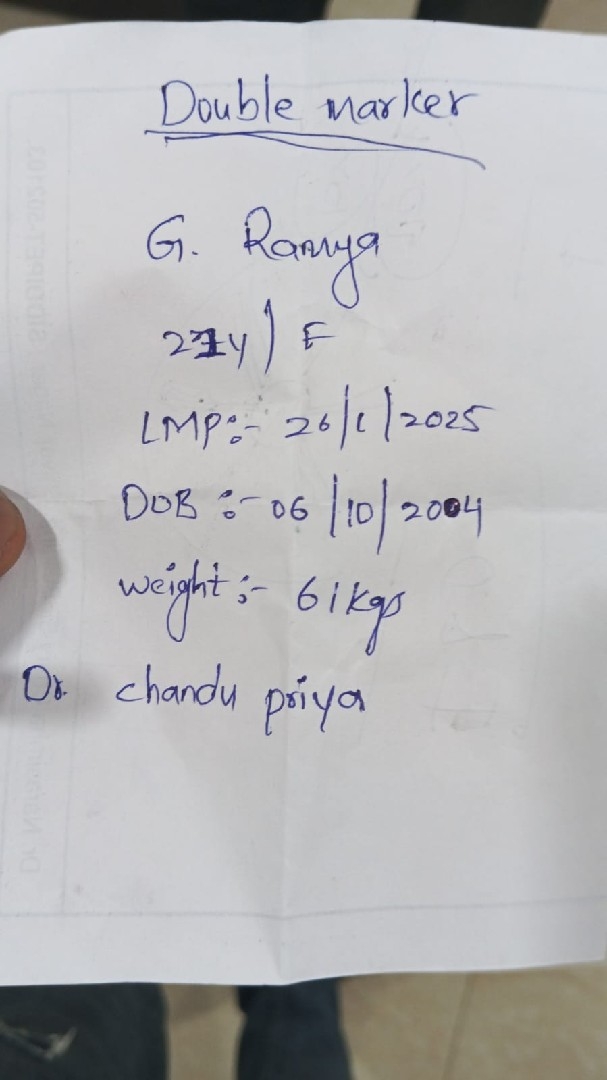 Double marker
G. Ramya
LMP:- 26/1/2025
DOB :- 06/10/2004
weight :- 61kgs
Dr. chandu priya